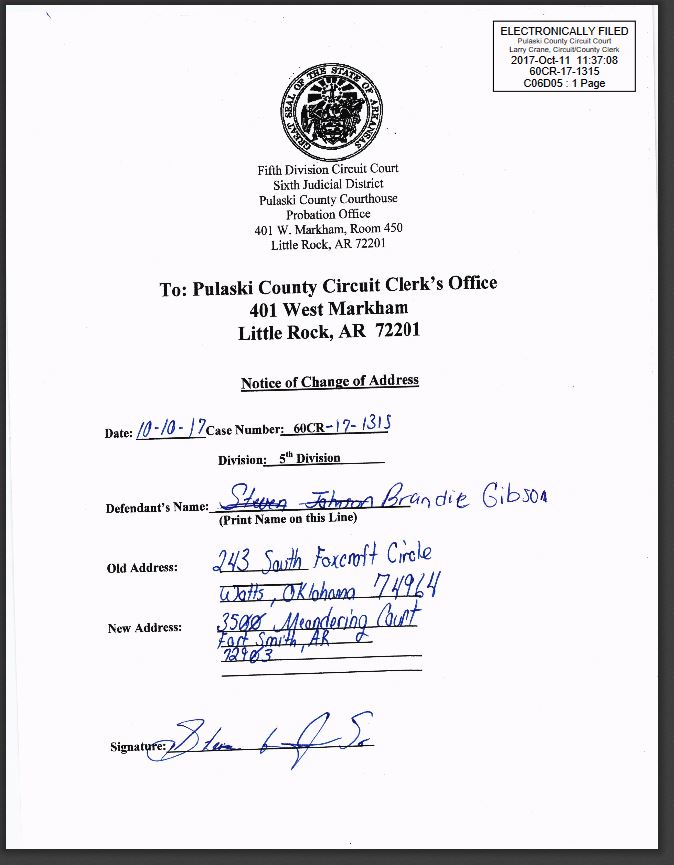 ELECTRONICALLY FILED
Pulaski County Circuit Court
Larry Crane, Circuit/County Clerk
2017-Oct-11 11:37:08
60CR-17-1315
C06D05 : 1 Page
GREAT SEAL OF THE STATE OF ARKANSAS
Fifth Division Circuit Court
Sixth Judicial District
Pulaski County Courthouse
Probation Office
401 W. Markham, Room 450
Little Rock, AR 72201
To: Pulaski County Circuit Clerk's Office
401 West Markham
Little Rock, AR 72201
Notice of Change of Address
Date: 10-10-17 Case Number: 60CR-17-1315
Division: 5th Division
Defendant's Name: Steven Johnson Brandie Gibson
(Print Name on this Line)
Old Address: 243 South Foxcroft Circle
Watts, Oklahoma 74964
New Address: 3500 Meandering Court
Fort Smith, AR
72903
Signature: